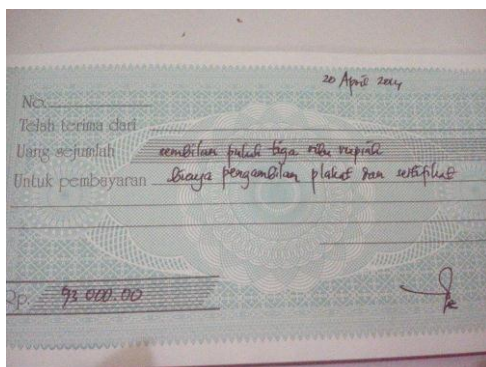 20 April 2014
No.
Telah terima dari
Uang sejumlah sembilan puluh tiga ribu rupiah
Untuk pembayaran biaya pengambilan plakat dan sertifikat
Rp. 93 000.00